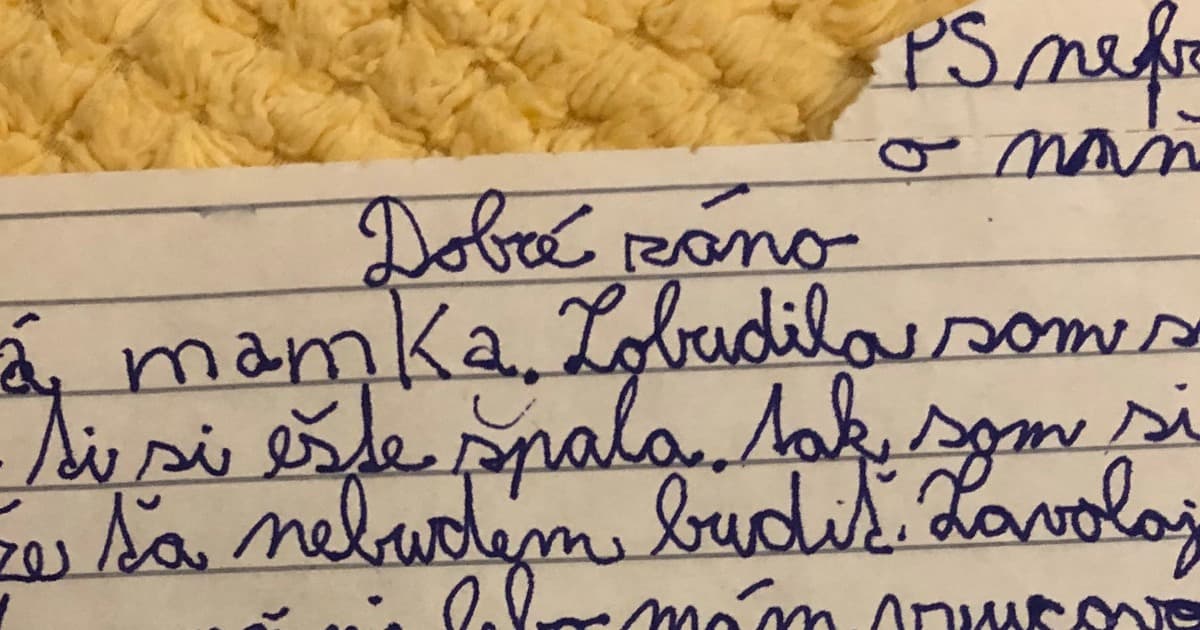 PS
o
Dobré ráno
mamka. Zobudila som
ti si ešte špala. tak som si
že ťa nebudem budiť. Zavolaj
lebo mám